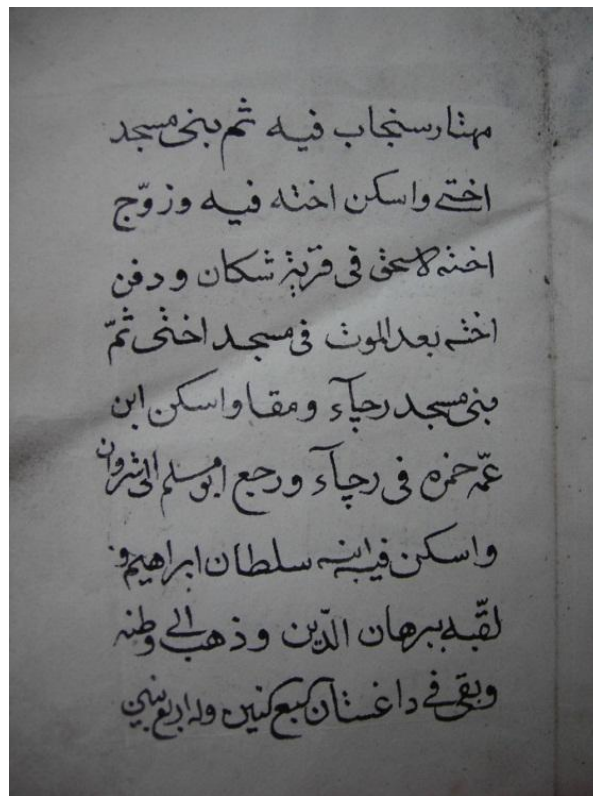 مهتار سنجاب فيه ثم بنى مسجد
اختى واسكن اخته فيه وزوّج
اخته لاسحق فى قرية شكان ودفن
اخته بعد الموت فى مسجد اختى ثمّ
بنى مسجد رچاء ومقا واسكن ابن
عمّه حمزه فى رچاء ورجع ابو مسلم الى شروان
واسكن فيه ابنه سلطان ابراهيم و
لقّبه ببرهان الدّين وذهب الى وطنه
وبقى فى داغستان سبع وله اربع